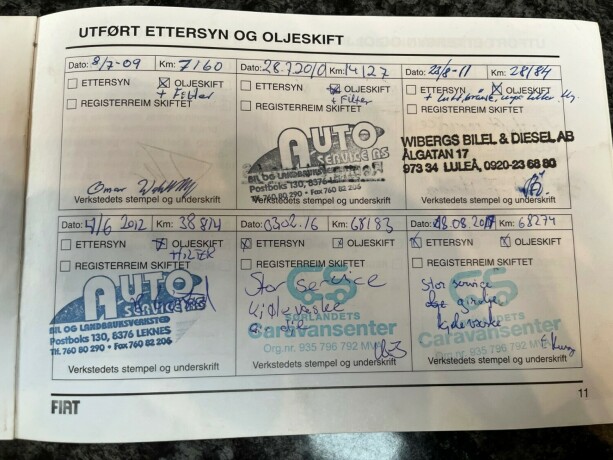 UTFØRT ETTERSYN OG OLJESKIFT
Dato: 8/7-09 Km: 7160
ETTERSYN OLJESKIFT
+ Filter
REGISTERREIM SKIFTET
Omar
Verkstedets stempel og underskrift
Dato: 28.7.2010 Km: 14127
ETTERSYN OLJESKIFT
+ Filter
REGISTERREIM SKIFTET
AUTO
SERVICE AS
BIL OG LANDBRUKSVERKSTED
Postboks 130, 8376 LEKNES
Tlf. 760 80 290 • Fax 760 82 206
Verkstedets stempel og underskrift
Dato: 23/8-11 Km: 28184
ETTERSYN OLJESKIFT
REGISTERREIM SKIFTET
WIBERGS BILEL & DIESEL AB
ÅLGATAN 17
973 34 LULEÅ, 0920-23 68 80
Verkstedets stempel og underskrift
Dato: 4/6 2012 Km: 38814
ETTERSYN OLJESKIFT
REGISTERREIM SKIFTET
AUTO
SERVICE AS
BIL OG LANDBRUKSVERKSTED
Postboks 130, 8376 LEKNES
Tlf. 760 80 290 • Fax 760 82 206
Verkstedets stempel og underskrift
Dato: 03.02.16 Km: 68183
ETTERSYN OLJESKIFT
REGISTERREIM SKIFTET
Stor service
Kjølevæske
CS
SØRLANDETS
Caravansenter
Org.nr. 935 796 792 MVA
Verkstedets stempel og underskrift
Dato: 18.08.2017 Km: 68274
ETTERSYN OLJESKIFT
REGISTERREIM SKIFTET
Stor service
kjølevæske
CS
SØRLANDETS
Caravansenter
Org.nr. 935 796 792 MVA
Verkstedets stempel og underskrift
FIAT
11